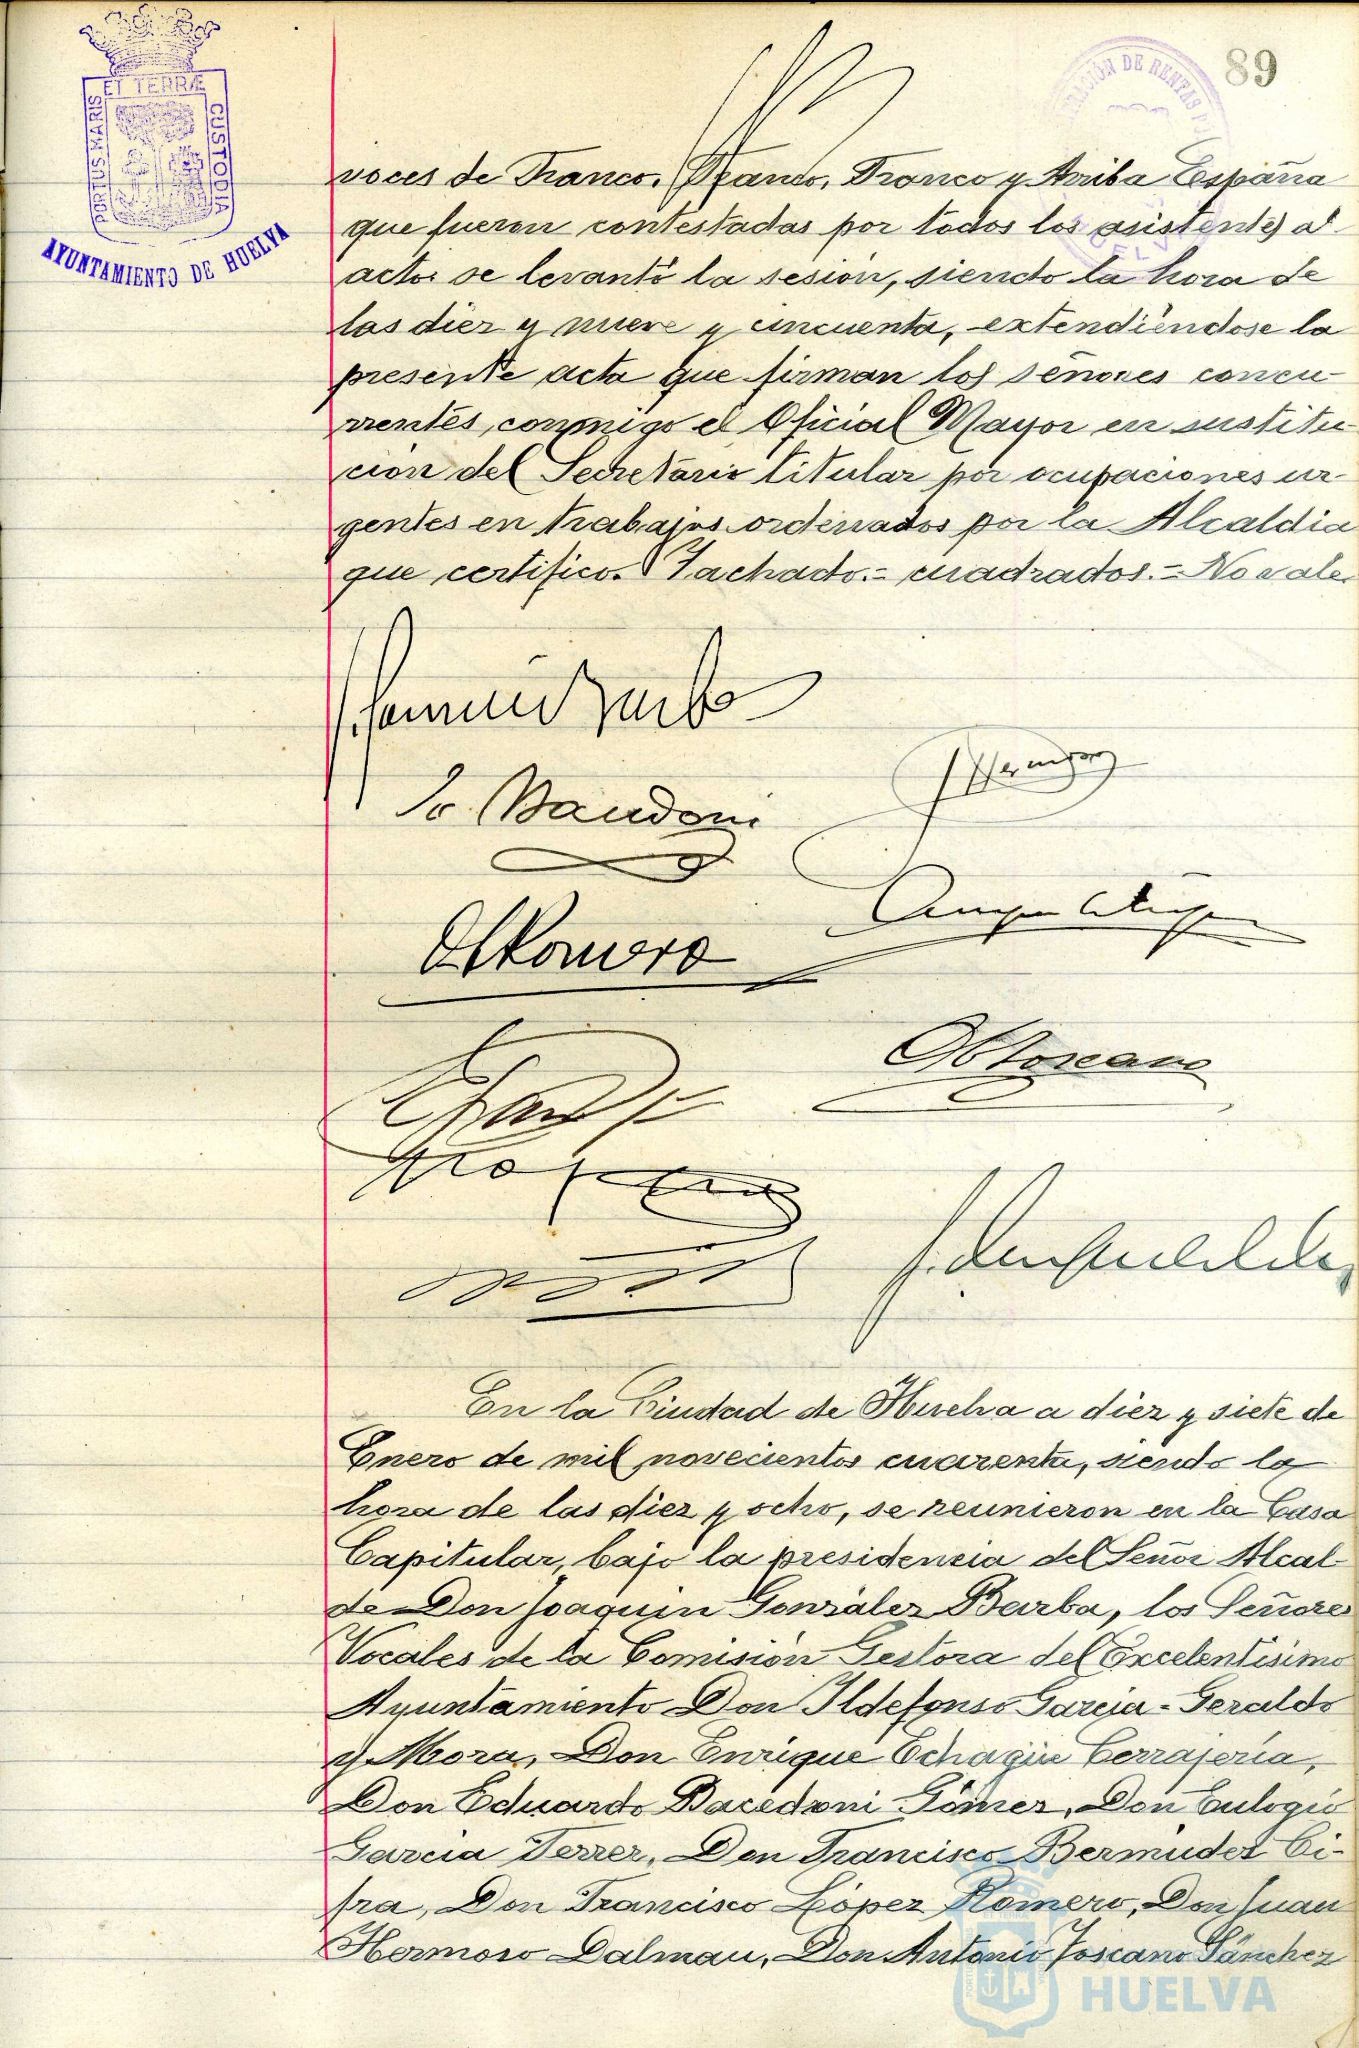 89
ET TERRÆ
PORTUS MARIS
CUSTODIA
AYUNTAMIENTO DE HUELVA
DE RENTAS
voces de Franco, Franco, Franco y Arriba España
que fueron contestadas por todos los asistentes al
acto: se levantó la sesión, siendo la hora de
las diez y nueve y cincuenta, extendiéndose la
presente acta que firman los señores concu-
rrentes, conmigo el Oficial Mayor en sustitu-
ción del Secretario titular por ocupaciones ur-
gentes en trabajos ordenados por la Alcaldia
que certifico. Tachado.= cuadrados.= No vale.
Romero
En la Ciudad de Huelva a diez y siete de
Enero de mil novecientos cuarenta, siendo la
hora de las diez y ocho, se reunieron en la Casa
Capitular, bajo la presidencia del Señor Alcal-
de Don Joaquin González Barba, los Señores
Vocales de la Comisión Gestora del Excelentísimo
Ayuntamiento Don Ildefonso Garcia-Geraldo
y Mora, Don Enrique Echagüe Cerrajería,
Don Eduardo Bacedoni Gómez, Don Eulogio
Garcia Ferrer, Don Francisco Bermudez Ci-
fra, Don Francisco López Romero, Don Juan
Hermoso Dalmau, Don Antonio Toscano Sánchez
HUELVA